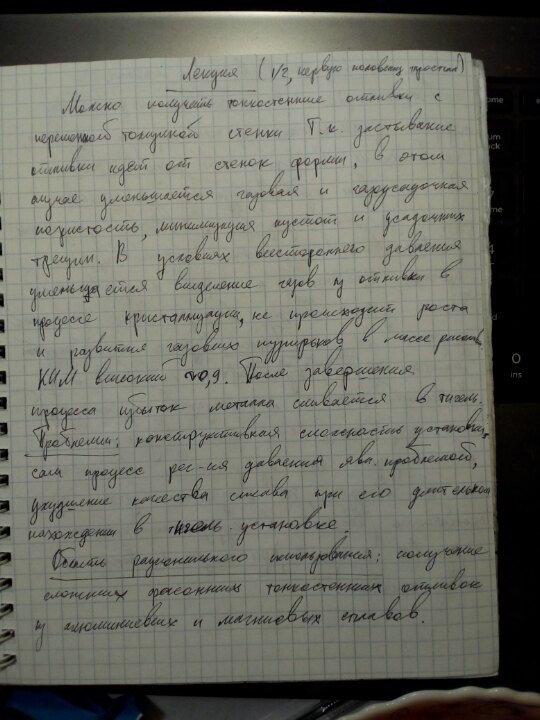 Лекция (1/2, первую половину проспал)
Можно получать тонкостенные отливки с
переменной толщиной стенки. Т.к. застывание
отливки идет от стенок формы, в этом
случае уменьшается газовая и газоусадочная
пористость, минимизация пустот и усадочных
трещин. В условиях всестороннего давления
уменьшается выделение газов из отливки в
процессе кристаллизации, не происходит роста
и развития газовых пузырьков в массе расплава
КИМ высокий ~0,9. После завершения
процесса избыток металла сливается в тигель.
Проблемы: конструктивная сложность установки,
сам процесс рег-ия давления явл. проблемой,
ухудшение качества сплава при его длительном
нахождении в тигель. установке.
Область рационального использования: получение
сложных фасонных тонкостенных отливок
из алюминиевых и магниевых сплавов.